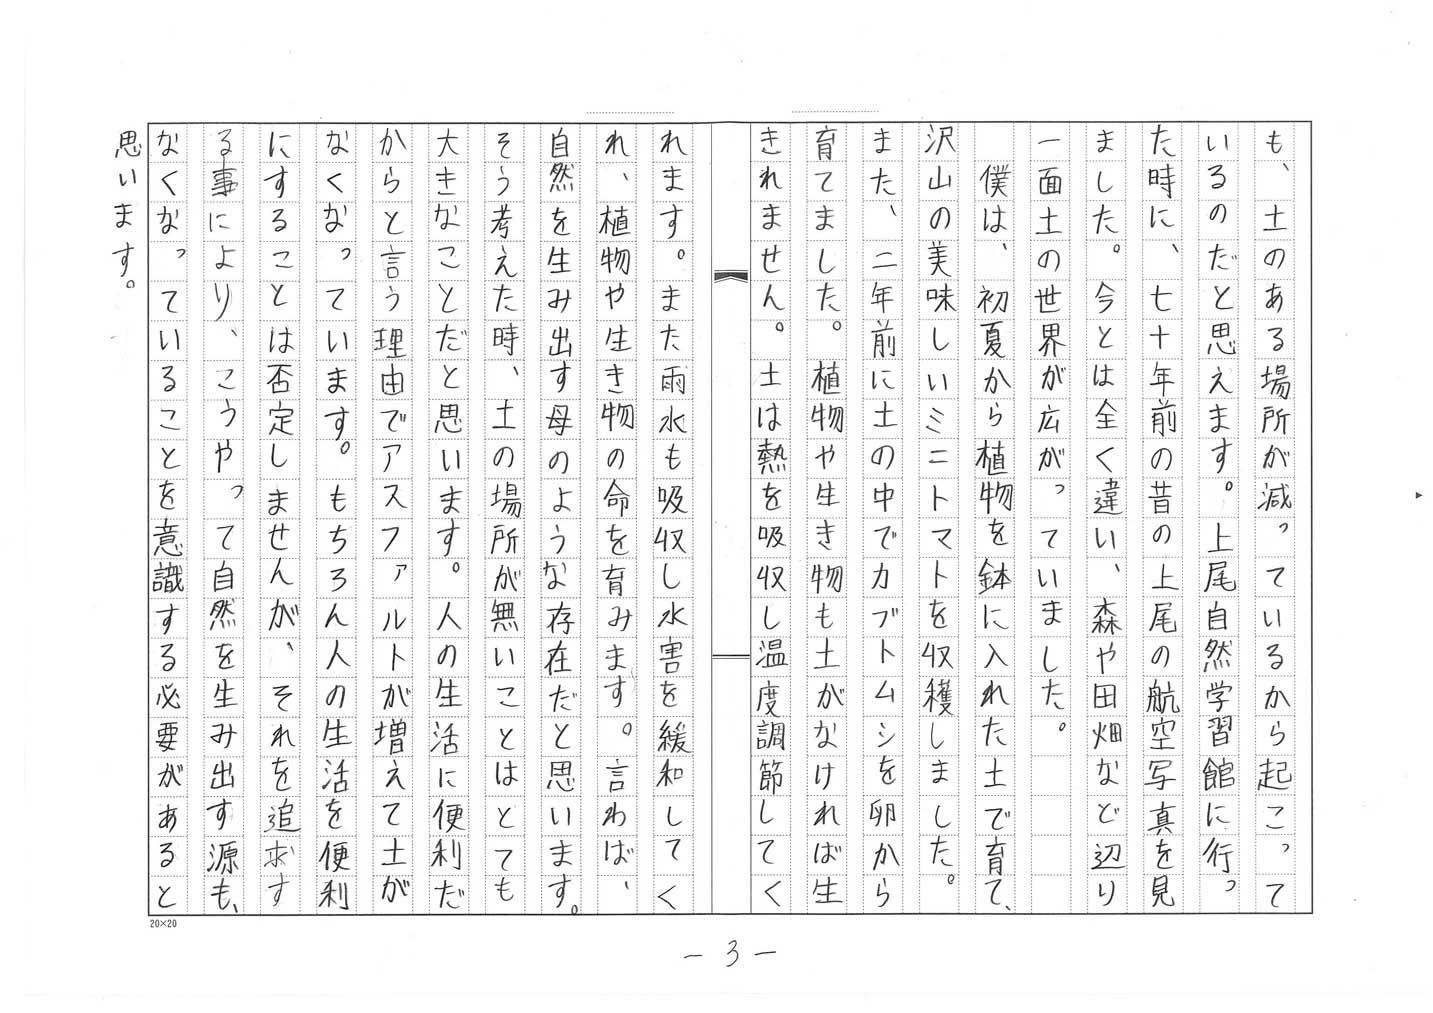 も、土のある場所が減っているから起こって
いるのだと思えます。上尾自然学習館に行っ
た時に、七十年前の昔の上尾の航空写真を見
ました。今とは全く違い、森や田畑など辺り
一面土の世界が広がっていました。
僕は、初夏から植物を鉢に入れた土で育て、
沢山の美味しいミニトマトを収穫しました。
また、二年前に土の中でカブトムシを卵から
育てました。植物や生き物も土がなければ生
きれません。土は熱を吸収し温度調節してく
れます。また雨水も吸収し水害を緩和してく
れ、植物や生き物の命を育みます。言わば、
自然を生み出す母のような存在だと思います。
そう考えた時、土の場所が無いことはとても
大きなことだと思います。人の生活に便利だ
からと言う理由でアスファルトが増えて土が
なくなっています。もちろん人の生活を便利
にすることは否定しませんが、それを追求す
る事により、こうやって自然を生み出す源も、
なくなっていることを意識する必要があると
思います。
20×20
－3－